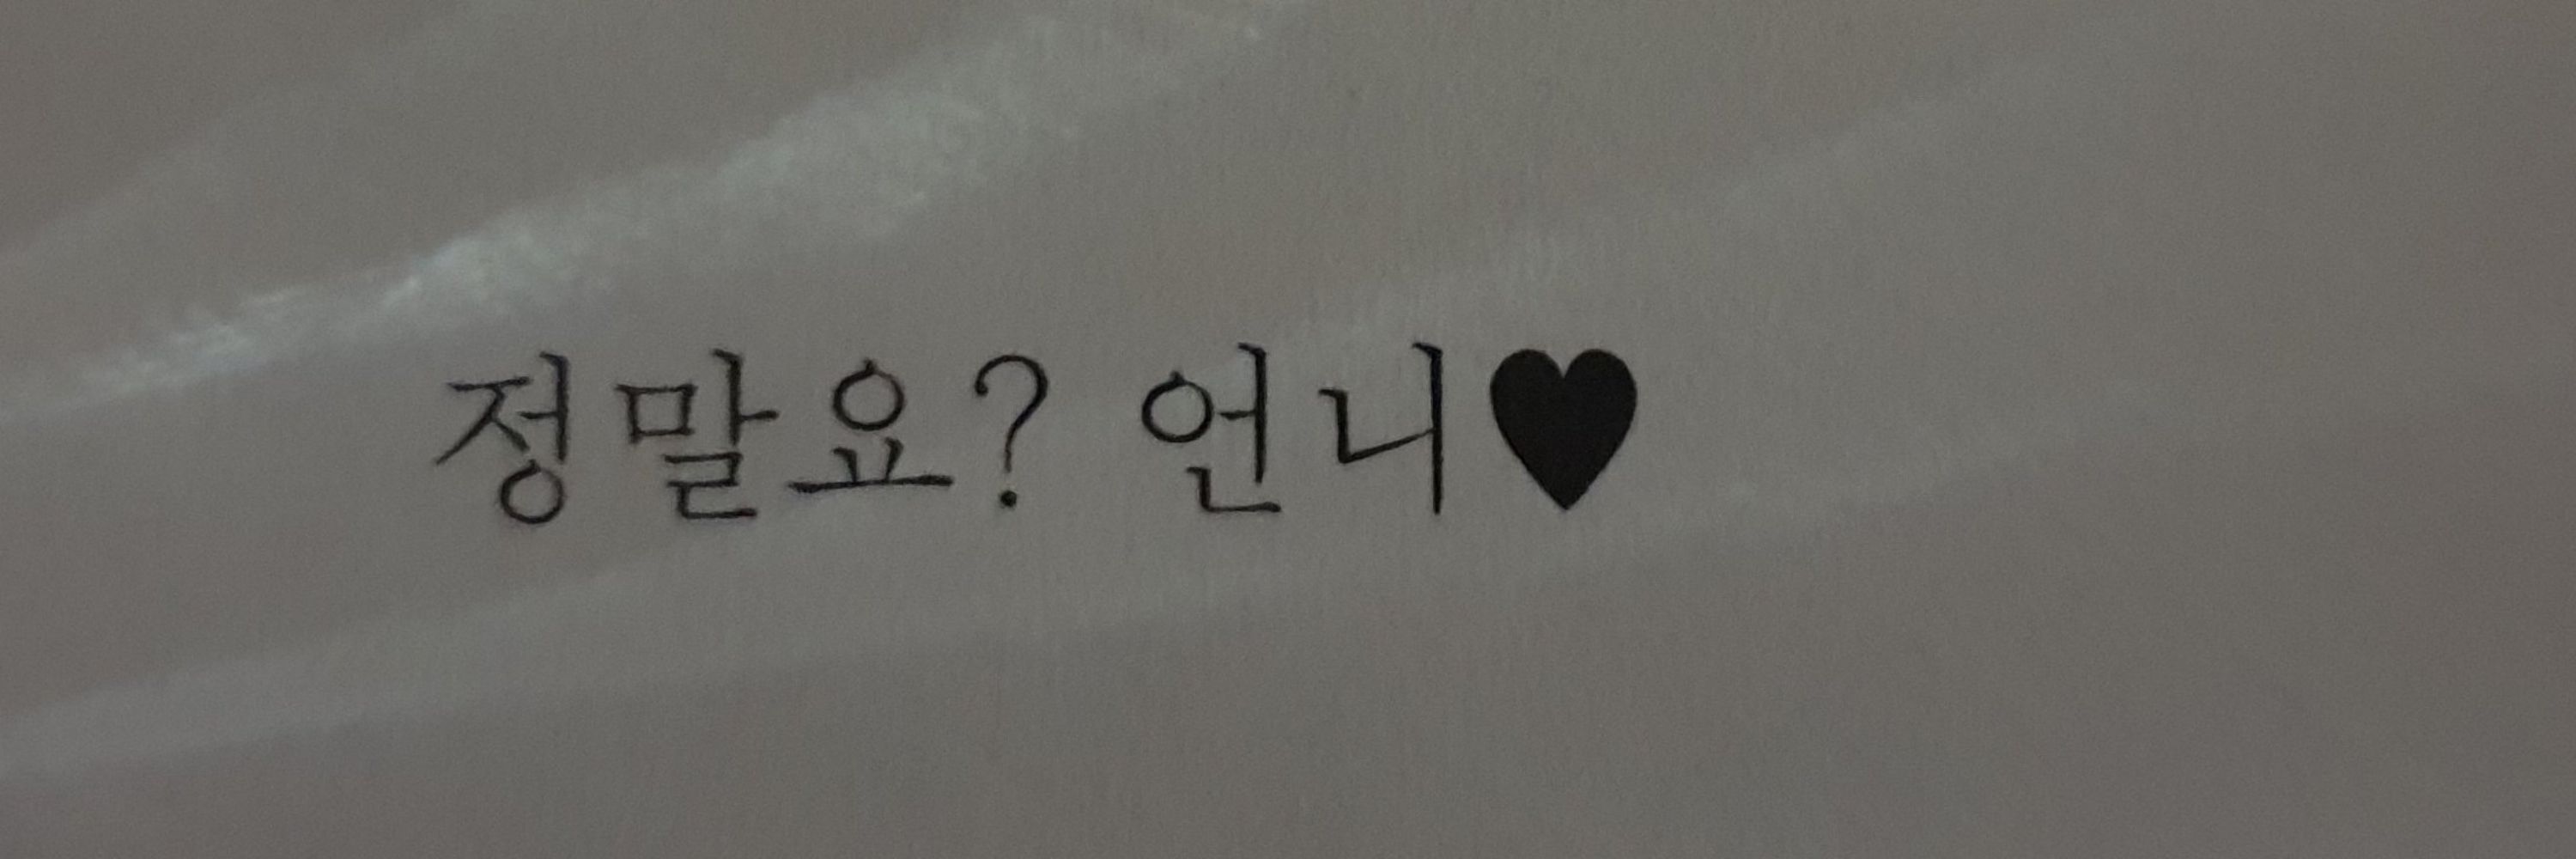 정말요? 언니♥